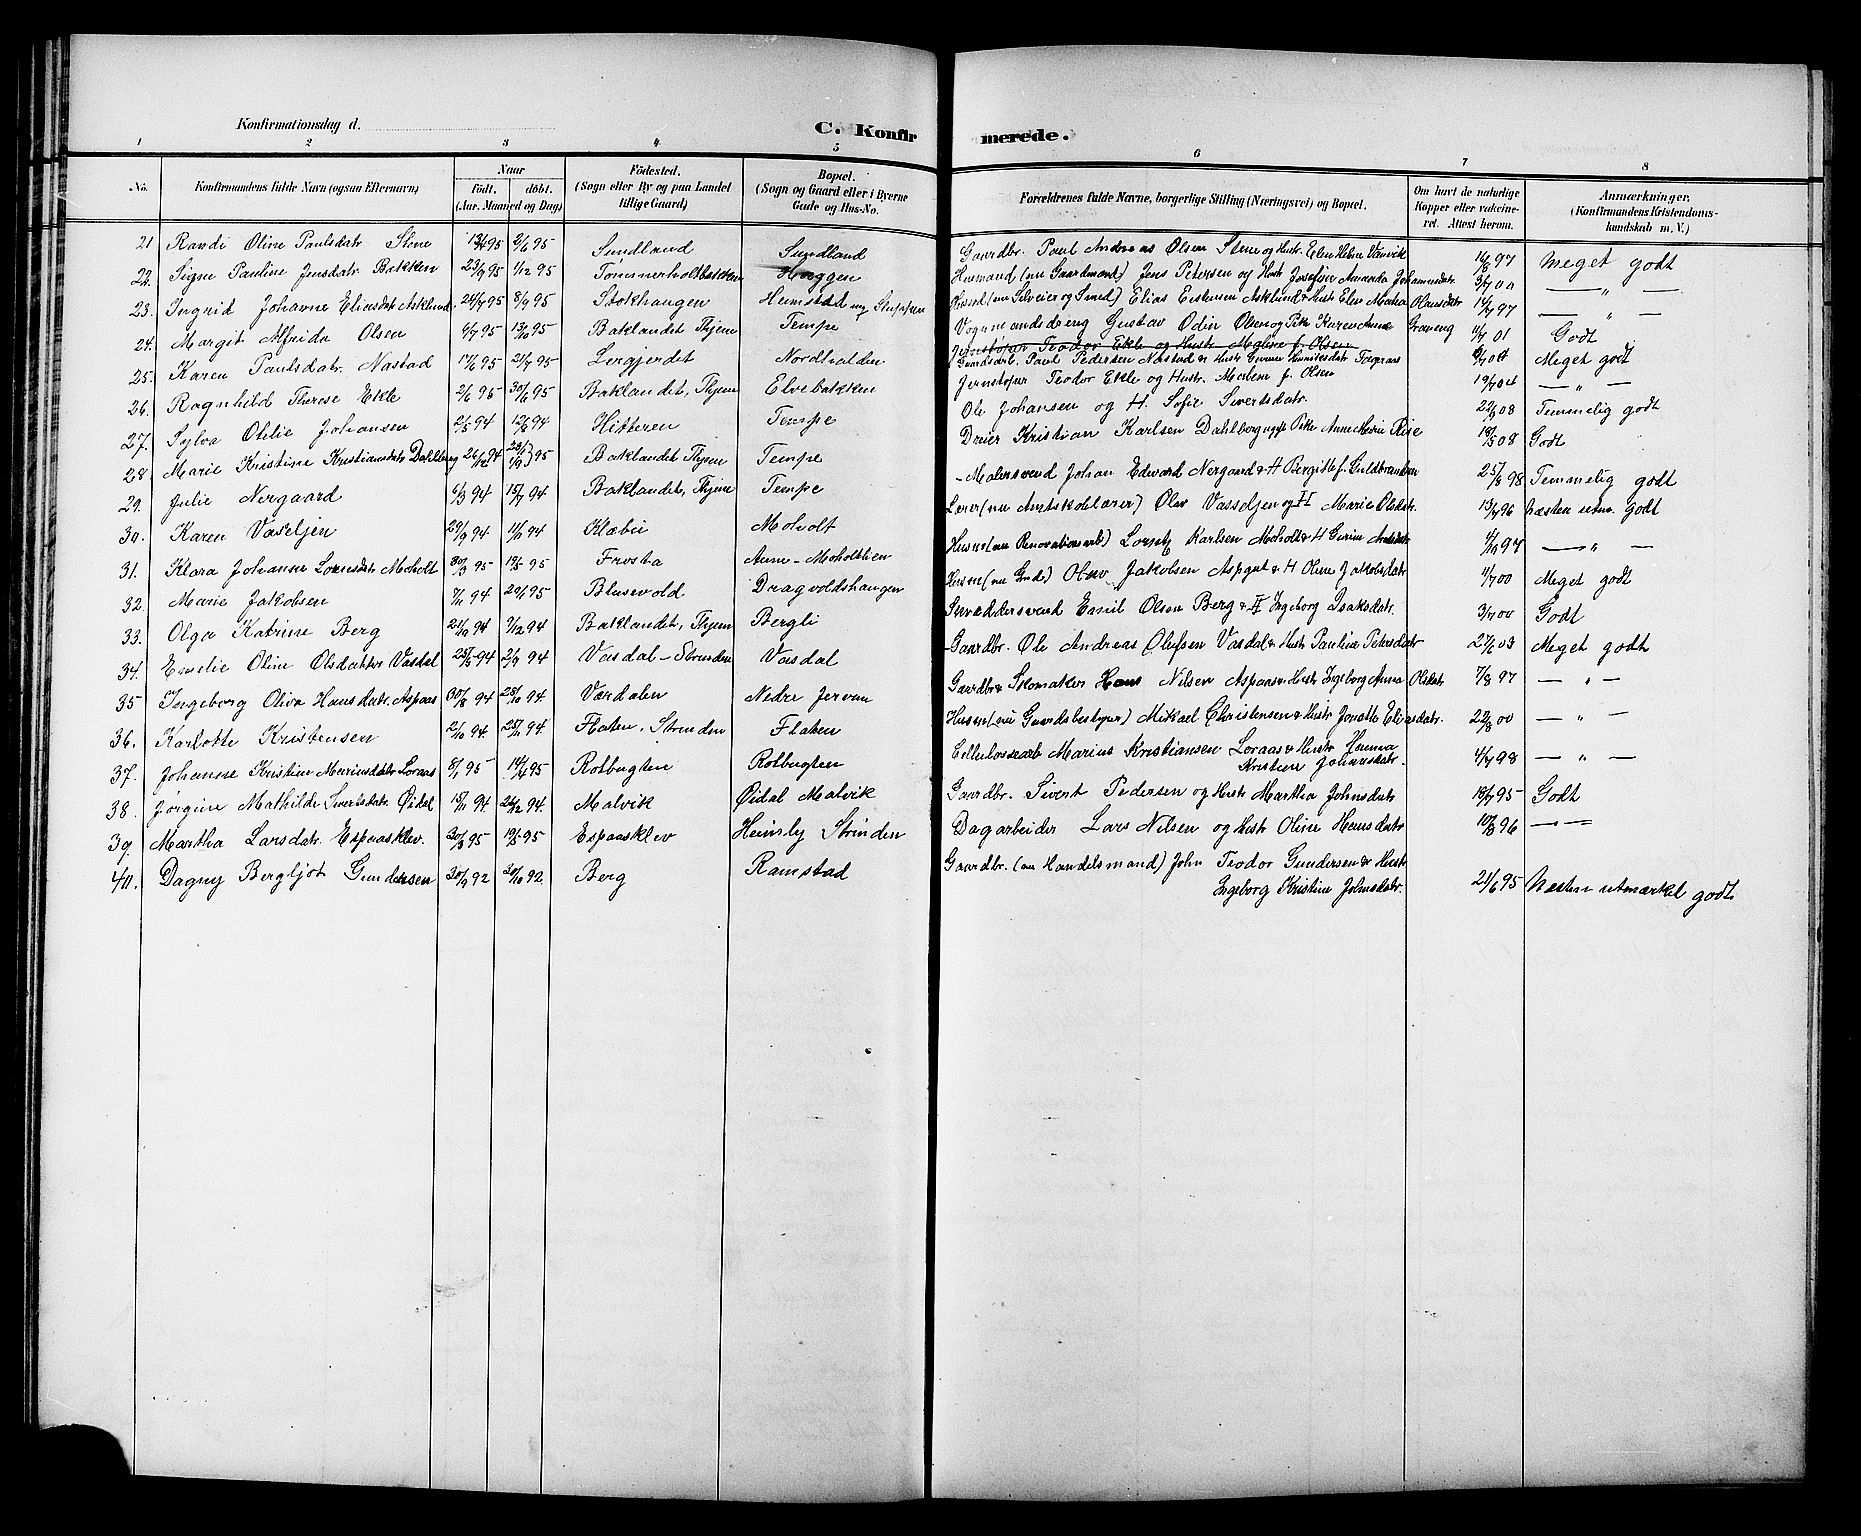 Konfirmationsdag d.
C. Konfirmerede.
1 2 3 4 5 6 7 8
No. Konfirmandens fulde Navn (ogsaa Efternavn) Naar født. døbt. (Aar, Maaned og Dag) Fødested. (Sogn eller By og paa Landet tillige Gaard) Bopæl. (Sogn og Gaard eller i Byerne Gade og Hus-No. Forældrenes fulde Navne, borgerlige Stilling (Næringsvei) og Bopæl. Om havt de naturlige Kopper eller vakcineret. Attest herom. Anmærkninger. (Konfirmandens Kristendomskundskab m. V.)
21 Randi Oline Paulsdatr Stene 13/4 95 2/6 95 Sundland Sundland Gaardbr. Paul Andreas Olsen Stene og Hustr. Elen Helna Vanvik 14/8 97 Meget godt
22. Signe Pauline Jensdatr Bakken 23/9 95 1/12 95 Tømmerholtbakken Hoeggen Husmand (nu Gaardmand) Jens Petersen og Hustr Josefine Amanda Johannesdatr 3/7 00 — " —
23. Ingrid Johanne Eliasdatr Asklund 24/7 95 8/9 95 Stokhaugen Heimstad Husmd (nu Selveier og Smed) Elias Asklund & Hustr Elen Martha Olausdatr 14/7 97 — " —
24. Margit Alfrida Olsen 6/7 95 13/10 95 Baklandet, Thjem Tempe Vognmandsdreng Gustav Odin Olsen og Pike Karen Anna Graneng 11/7 01 Godt
Jernstøper Teodor Ekle og Hustr Malene f. Olsen
25. Karen Paulsdatr. Nastad 17/6 95 21/7 95 Lergjerdet Nordhalden Gaardsarb. Paul Pedersen Nastad & Hustr Meget godt
26. Ragnhild Therese Ekle 2/6 95 30/6 95 Baklandet, Thjem Elvebakken Jernstøper Teodor Ekle og Hustr. Malene f. Olsen 19/7 04 — " —
27. Sylva Otelie Johansen 2/5 94 12/8 94 Hitteren Tempe Ole Johansen og H. Sofie Sivertsdatr. 22/9 08 Temmelig godt
28. Marie Kristine Kristiansdatr Dahlberg 26/12 94 95 Baklandet Thjem Tempe Dreier Kristian Karlsen Dahlberg ugift Pike Anne Marie Riise 18/5 08 Godt
29. Julie Nergaard 6/3 94 15/7 94 Baklandet, Thjem Tempe Malersvend Johan Edward Nergaard & H Bergitte f. Guldbrandsen 25/8 98 Temmelig godt
30. Karen Vaseljen 29/9 94 11/11 94 Klæbu Moholt Lærer (nu Amtskolelærer) Olav Vasseljen og H Marie Olsdatr. 13/7 96 Næsten utm. godt
31. Klara Johanne Lorensdatr Moholt 30/3 95 12/5 95 Frosta Aune-Moholtlien Husm (nu Renovationsarb) Lorentz Karlsen Moholt & H Gurine 4/10 97 — " —
32. Marie Jakobsen 7/11 94 20/1 95 Blusevold Dragvoldshaugen Husm (nu Gbr.) Olav Jakobsen Aspgut & H Oline Jakobsdatr 11/7 00 Meget godt
33. Olga Katrine Berg 21/9 94 7/12 94 Baklandet, Thjem Bergli Skræddersvend Emil Olsen Berg & H Ingeborg Isaksdatr. 3/7 00 Godt
34. Emelie Oline Olsdatter Vasdal 25/5 94 2/9 94 Vasdal-Strinden Vasdal Gaardbr. Ole Andreas Olufsen Vasdal & Hustr Pauline Petersdatr 27/6 03 Meget godt
35 Ingeborg Oliva Hansdatr. Aspaas 30/8 94 28/10 94. Værdalen Nedre Jervan Gaardbr & Skomaker Hans Nilsen Aspaas & Hustr Ingeborg Anna Olsdatr 7/8 97 — " —
36. Karlotte Kristensen 2/10 94. 25/11 94. Flaten, Strinden Flaten Husm (nu Gaardsbestyrer) Mikael Christensen & Hustr Jonette Eliasdatr. 22/8 00 — " —
37. Johanne Kristine Mariusdatr Loraas 8/1 95 14/4 95 Rotbugten Rotbugten Cellulosearb Marius Kristiansen Loraas & Hustr Hanna
Kristine Johansdatr. 4/7 98 — " —
38. Jørgine Mathilde Sivertsdatr. Øidal 18/11 94 26/12 94. Malvik Øidal Malvik Gaardbr. Sivert Pedersen og Hustr Martha Johnsdatr 18/7 95 Godt
39. Martha Larsdatr. Espaasklev. 20/3 95 19/5 95 Espaasklev Heimly Strinden Dagarbeider Lars Nilsen og Hustr Oline Hansdatr 10/8 96 — " —
40. Dagny Bergljot Gundersen 20/9 92 30/10 92. Berg Ramstad Gaardbr. (nu Handelsmand) John Teodor Gundersen & Hustr
Ingeborg Kristine Johnsdatr. 21/6 95 Næsten utmærket godt